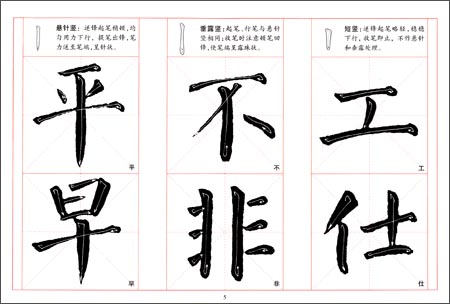 悬针竖：逆锋起笔稍顿，均
匀用力下行，提笔出锋，笔
力送至笔端，呈针状。
垂露竖：起笔、行笔与悬针
竖相同；收笔时注意顿笔回
锋，使笔端呈露珠状。
短竖：逆锋起笔略轻，稳稳
下行，收笔即止，不作悬针
和垂露处理。
平
不
工
平
不
工
早
非
仕
早
非
仕
5